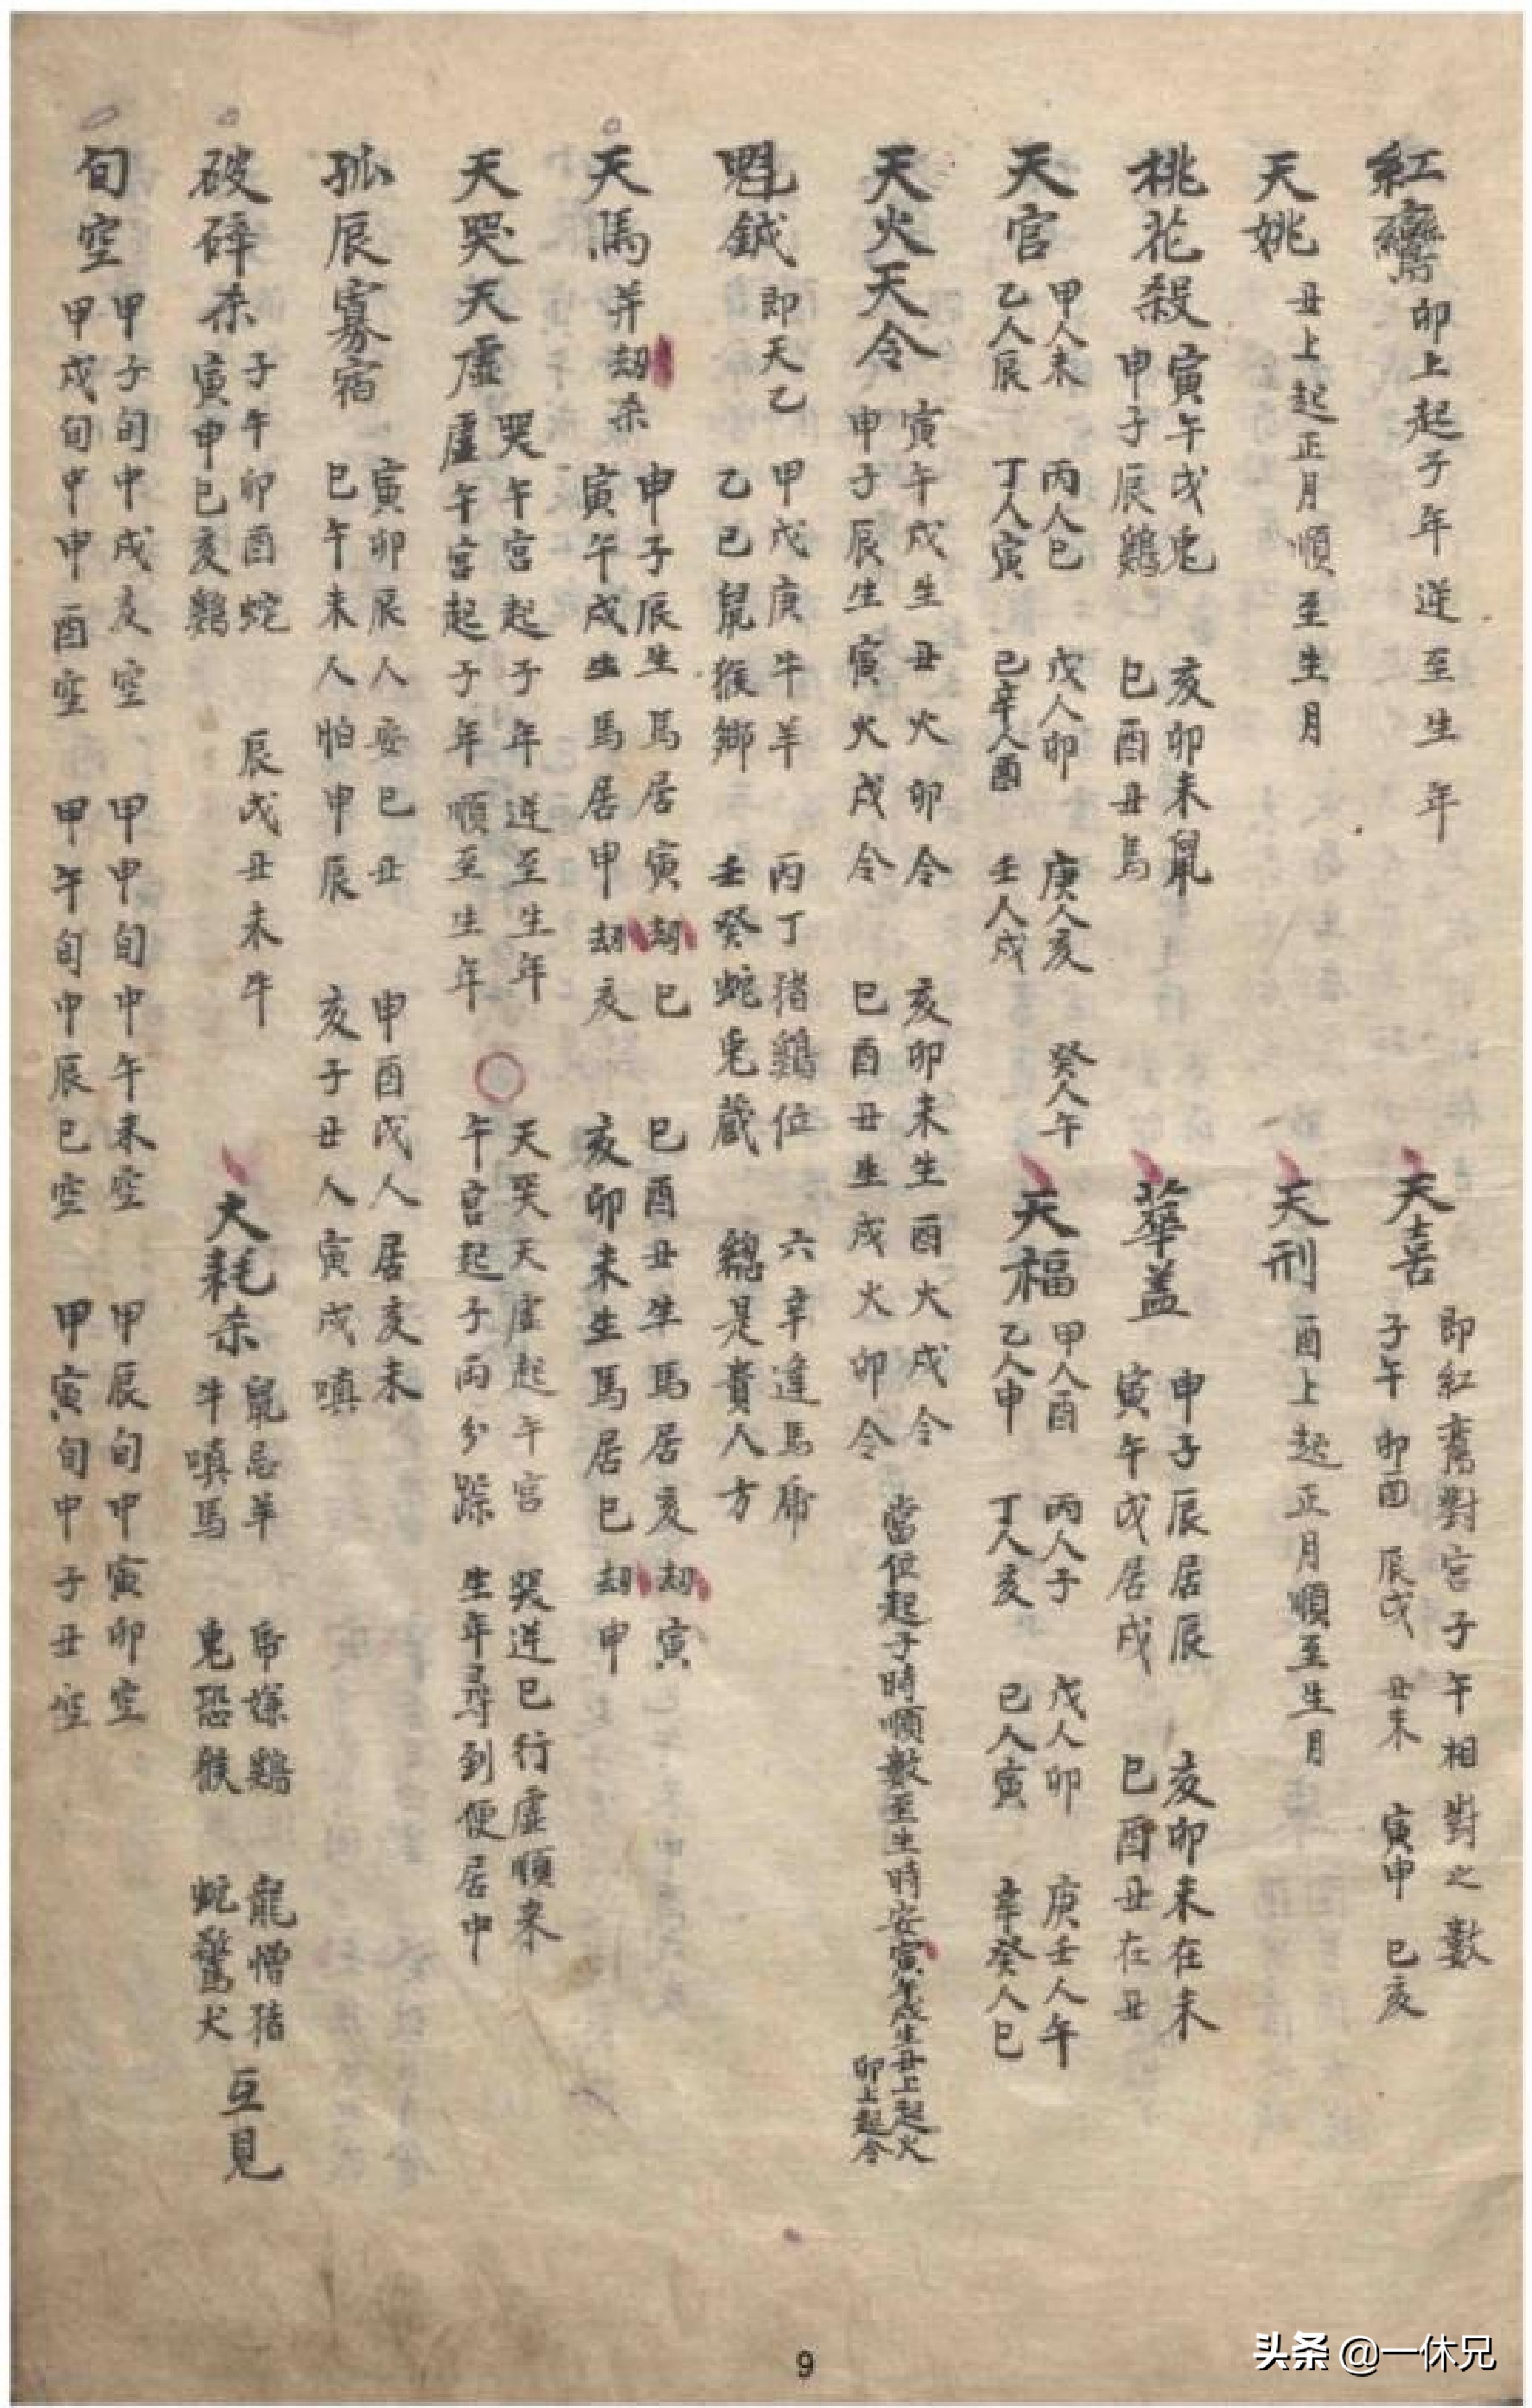 紅鸞 卯上起子年逆至生年
天喜 即紅鸞對宮子午相對之數
子午 卯酉 辰戌 丑未 寅申 巳亥
天姚 丑上起正月順至生月
天刑 酉上起正月順至生月
桃花殺 寅午戌兎 亥卯未鼠
申子辰鷄 巳酉丑馬
華盖 申子辰居辰 亥卯未在未
寅午戌居戌 巳酉丑在丑
天官 甲人未 丙人巳 戊人卯 庚人亥 癸人午
乙人辰 丁人寅 己辛人酉 壬人戌
天福 甲人酉 丙人子 戊人卯 庚壬人午
乙人申 丁人亥 己人寅 辛癸人巳
天火天令 寅午戌生丑火卯令 亥卯未生酉火戌令
申子辰生寅火戌令 巳酉丑生戌火卯令
當位起子時順數至生時安寅午戌生丑上起火
卯上起令
魁鉞 即天乙 甲戊庚牛羊 丙丁猪鷄位 六辛逢馬虎
乙己鼠猴鄉 壬癸蛇兎藏 總是貴人方
天馬并劫杀 申子辰生馬居寅劫巳 巳酉丑生馬居亥劫寅
寅午戌生馬居申劫亥 亥卯未生馬居巳劫申
天哭天虛 哭午宮起子年逆至生年
虛午宮起子年順至生年
天哭天虛起午宮 哭逆巳行虛順來
午宮起子兩分踪 生年尋到便居中
孤辰寡宿 寅卯辰人安巳丑 申酉戌人居亥未
巳午未人怕申辰 亥子丑人寅戌嗔
破碎杀 子午卯酉蛇 辰戌丑未牛
寅申巳亥鷄
大耗杀 鼠忌羊 虎嫌鷄 龍憎猪
牛嗔馬 兎恐猴 蛇驚犬 互見
旬空 甲子旬中戌亥空 甲申旬中午未空 甲辰旬中寅卯空
甲戌旬中申酉空 甲午旬中辰巳空 甲寅旬中子丑空
9
头条 @一休兄